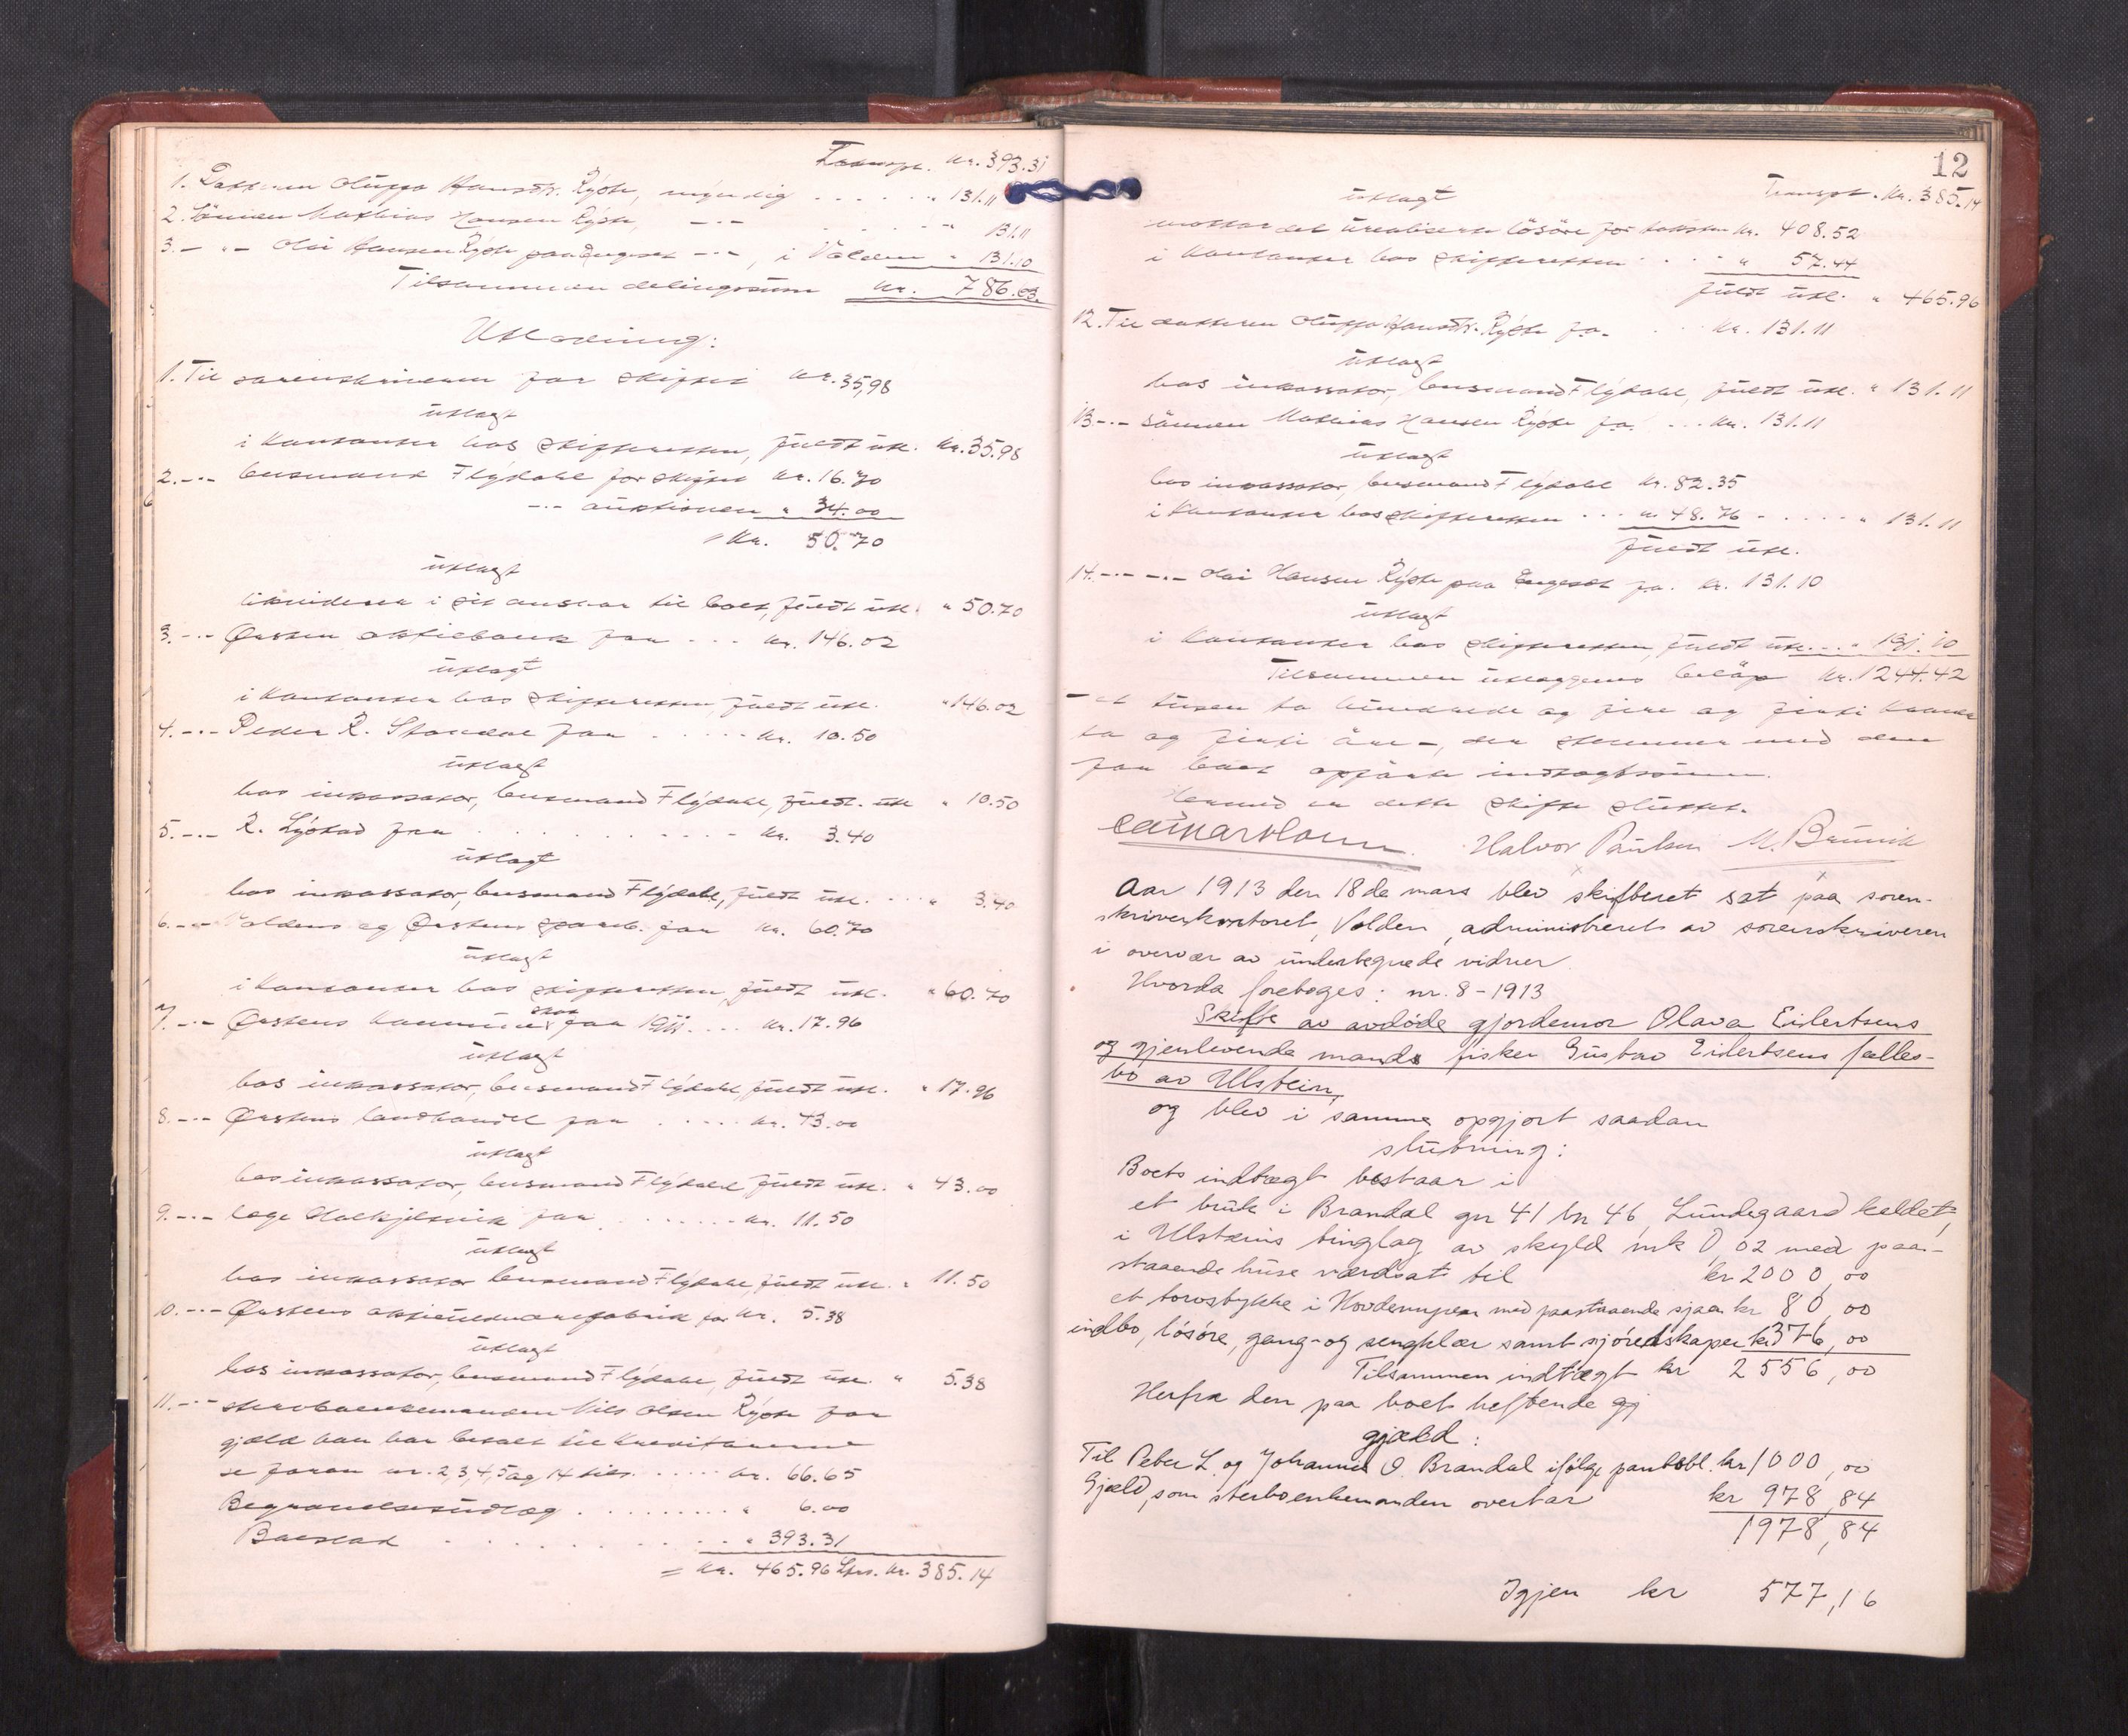 Transp. kr. 393.31
1. Datteren Oluffa Hansdtr. Ryste, myndig . . . . . . " 131.11
2. Sönnen Mathias Hansen Ryste, -"- . . " 131.11
3. - "- Olai Hansen Ryste paa Engeset -"-, i Volden " 131.10
Tilsammen delingssum kr. 786.63.
Utlodning:
1. Til sorenskriveren for skiftet kr. 35,98
utlagt
i kontanter hos skifteretten, fuldt utl. kr. 35.98
2. -"- lensmand Flydahl for skiftet kr. 16.70
-"- auktionen " 34.00
= kr. 50.70
utlagt
likvideret i sit ansvar til boet, fuldt utl. " 50.70
3. -"- Ørsten aktiebank for . . . kr. 146.02
utlagt
i kontanter hos skifteretten, fuldt utl. " 146.02
4. -"- Peder R. Standal for . . . . . kr. 10.50
utlagt
hos inkassator, lensmand Flydahl, fuldt utl " 10.50
5. -"- R. Lystad for . . . . . . . . . . kr. 3.40
utlagt
hos inkassator, lensmand Flydahl, fuldt utl. . . . " 3.40
6. -"- Voldens og Ørstens spareb. for kr. 60.70
utlagt
i kontanter hos skifteretten, fuldt utl. " 60.70
7. -"- Ørstens kommuneskat for 1911 . . . . kr. 17.96
utlagt
hos inkassator, lensmand Flydahl, fuldt utl. " 17.96
8. -"- Ørstens landhandel for . . . . . kr. 43.00
utlagt
hos inkassator, lensmand Flydahl fuldt utl. " 43.00
9. -"- læge for . . . . . . . kr. 11.50
utlagt
hos inkassator lensmand Flydahl, fuldt utl. " 11.50
10. -"- Ørstens for kr. 5.38
utlagt
hos inkassator, lensmand Flydahl, fuldt utl. " 5.38
11. -"- sterboenkemanden Nils Olsen Ryste for
gjæld han har betalt til kreditorerne
se foran nr. 2, 3, 4, 5 og 14 tils. . . . . . kr. 66.65
Begravelsesutlæg . . . . . . . . . " 6.00
Boeslod . . . . . . . . . . . . " 393.31
= kr. 465.96 Lprs. kr. 385.14
12
Transpt. kr. 385.14
utlagt
mottar det urealiserte lösöre for taksten kr. 408.52
i kontanter hos skifteretten . . . . " 57.44
fuldt utl. " 465.96
12. Til datteren Oluffa Hansdtr. Ryste fo. . . . kr. 131.11
utlagt
hos inkassator, lensmand Flydahl, fuldt utl. " 131.11
13. -"- sönnen Mathias Hansen Ryste fo. . . . kr. 131.11
utlagt
hos inkassator, lensmand Flydahl kr. 82.35
i kontanter hos skifteretten . . . kr. 48.76 . . . . . " 131.11
fuldt utl.
14. -"- -"- Olai Hansen Ryste paa Engeset fo. kr. 131.10
utlagt
i kontanter hos skifteretten, fuldt utl. . . . " 131.10
Tilsammen utlæggenes beløp kr. 1244.42
- et tusen to hundrede og fire og firti kroner
to og firti øre -, der stemmer med den
for boet opførte indtægtssum.
Hermed er dette skifte sluttet.
Halvor Paulsen M. Brunvik
Aar 1913 den 18de mars blev skifteret sat paa soren-
skriverkontoret, Volden, administreret av sorenskriveren
i overvær av undertegnede vidner.
Hvorda foretoges: nr. 8 - 1913
Skifte av avdøde gjordemor Olava Eilertsens
og gjenlevende mands fisker Gustav Eilertsens fælles-
bo av Ulstein,
og blev i samme opgjort saadan
slutning:
Boets indtægt bestaar i
et bruk i Brandal gnr 41 bnr 46, Lundegaard kaldet,
i Ulsteins tinglag av skyld mk 0,02 med paa-
staaende huse værdsat til kr 2000,00
et torvstykke i Hovdemyren med paastaaende sjaa kr 80,00
indbo, løsøre, gang- og sengklær samt sjøredskaper kr 376,00
Tilsammen indtægt kr 2556,00
Herfra den paa boet heftende gj
gjæld:
Til Peter L. og Johannes O. Brandal ifølge pantobl. kr 1000,00
Gjæld, som sterboenkemanden overtar kr 978,84
1978,84
Igjen kr 577,16